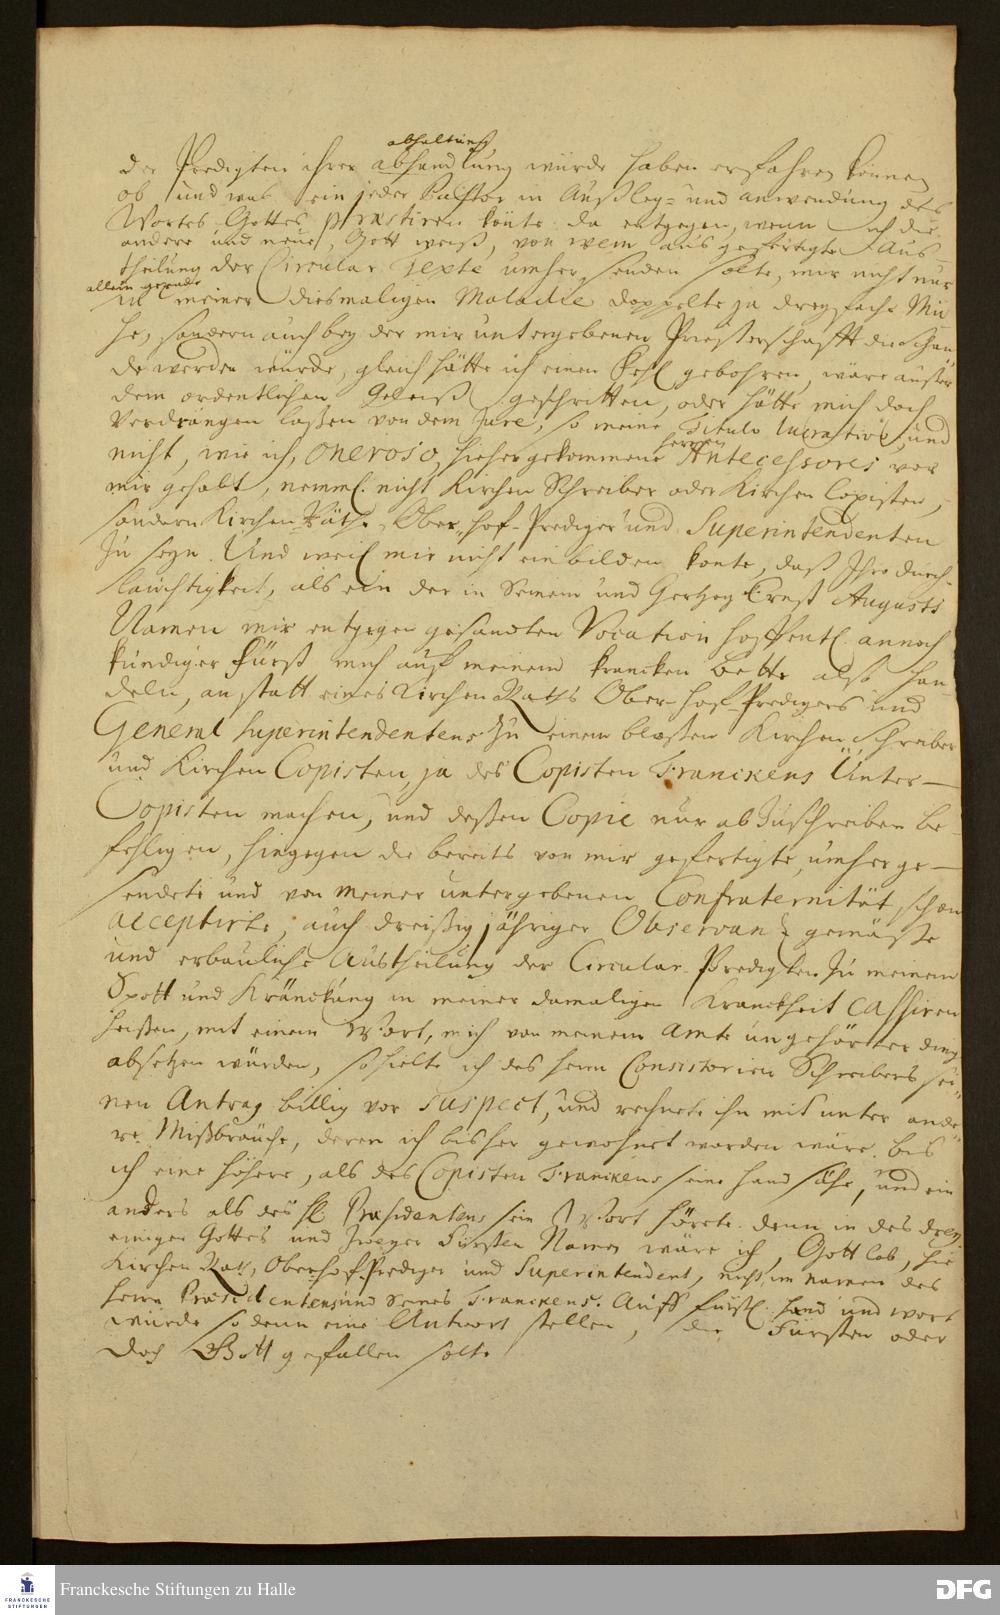 abhaltung
der Predigten ihrer abhandlung würde haben erfahren können
ob, und was ein jeder Pastor in Außleg= und anwendung des
Wortes Gottes præstiren könte da entgegen, wenn ich die
andere und neue, Gott weiß, von wem ausgefertigte Aus-
theilung der Circular Texte umher senden solte, mir nicht nur
allein gerade
in meiner diesmaligen Maladie doppelte ja dreyfache Mü
he, sondern auch bey der mir untergebenen Priesterschafft die Schan
de werden würde, gleich hätte ich einen Fehl gebohren, wäre außer
dem ordentlichen Geleiß geschritten, oder hätte mich doch
verdrängen laßen von dem Jure, so meine Titulo lucrativo, und
nicht, wie ich, oneroso, hieher gekommene Herren Antecessores vor
mir gehabt, neml. nicht Kirchen Schreiber oder Kirchen Copisten,
sondern Kirchen-Räthe, Ober-hof-Prediger und Superintendenten
zu seyn. Und weil mir nicht einbilden konte, daß Ihro Durch-
lauchtigkeit, als ein der in Seinem und Hertzog Ernst Augusts
Namen mir entgegen gesandten Vocation hoffentl. annoch
kündiger Fürst mich auf meinem krancken Bette also han-
deln, anstatt eines Kirchen Raths Ober-hof-Predigers und
General Superintendentens zu einem bloßen Kirchen Schreiber
und Kirchen Copisten, ja des Copisten Franckens Unter-
Copisten machen, und deßen Copie nur abzuschreiben be-
fehligen, hingegen die bereits von mir gefertigte, umher ge-
sendete und von meiner untergebenen Confraternität schon
acceptirte, auch dreißig jähriger Observanz gemäße
und erbauliche Austheilung der Circular-Predigten zu meinem
Spott und Kränckung in meiner damaligen Kranckheit cassiren
heißen, mit einem Wort, mich von meinem Amte ungehörter ding
absetzen würden, so hielte ich des Herrn Consistorien Schreibers sei-
nen Antrag billig vor suspect, und rechnete ihn mit unter ande-
re Mißbräuche, deren ich bisher gewohnet worden wäre, bis
ich eine höhere, als des Copisten Franckens seine Hand sähe, und ein
anders als des H. Præsidentens sein Wort hörete. denn in des drey
einiger Gottes und zweyer Fürsten Namen wäre ich, Gott lob, hie
Kirchen Rath, Oberhof-Prediger und Superintendent, nicht im namen des
Herrn Præsidentens und seines Franckens. Auff Fürstl. Hand und wort
würde so denn eine Antwort stellen, die Fürsten oder
doch Gott gefallen solte
Franckesche Stiftungen zu Halle
FRANCKESCHE
STIFTUNGEN
DFG